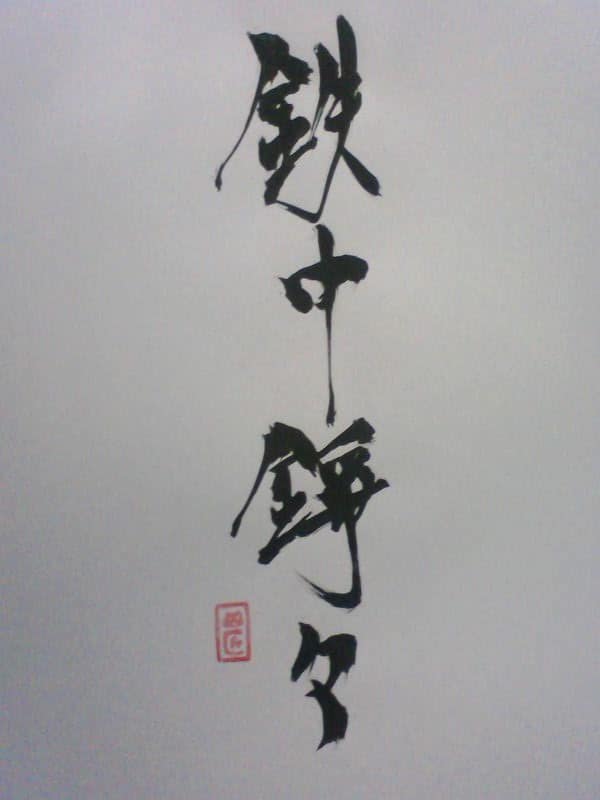 鉄中錚々